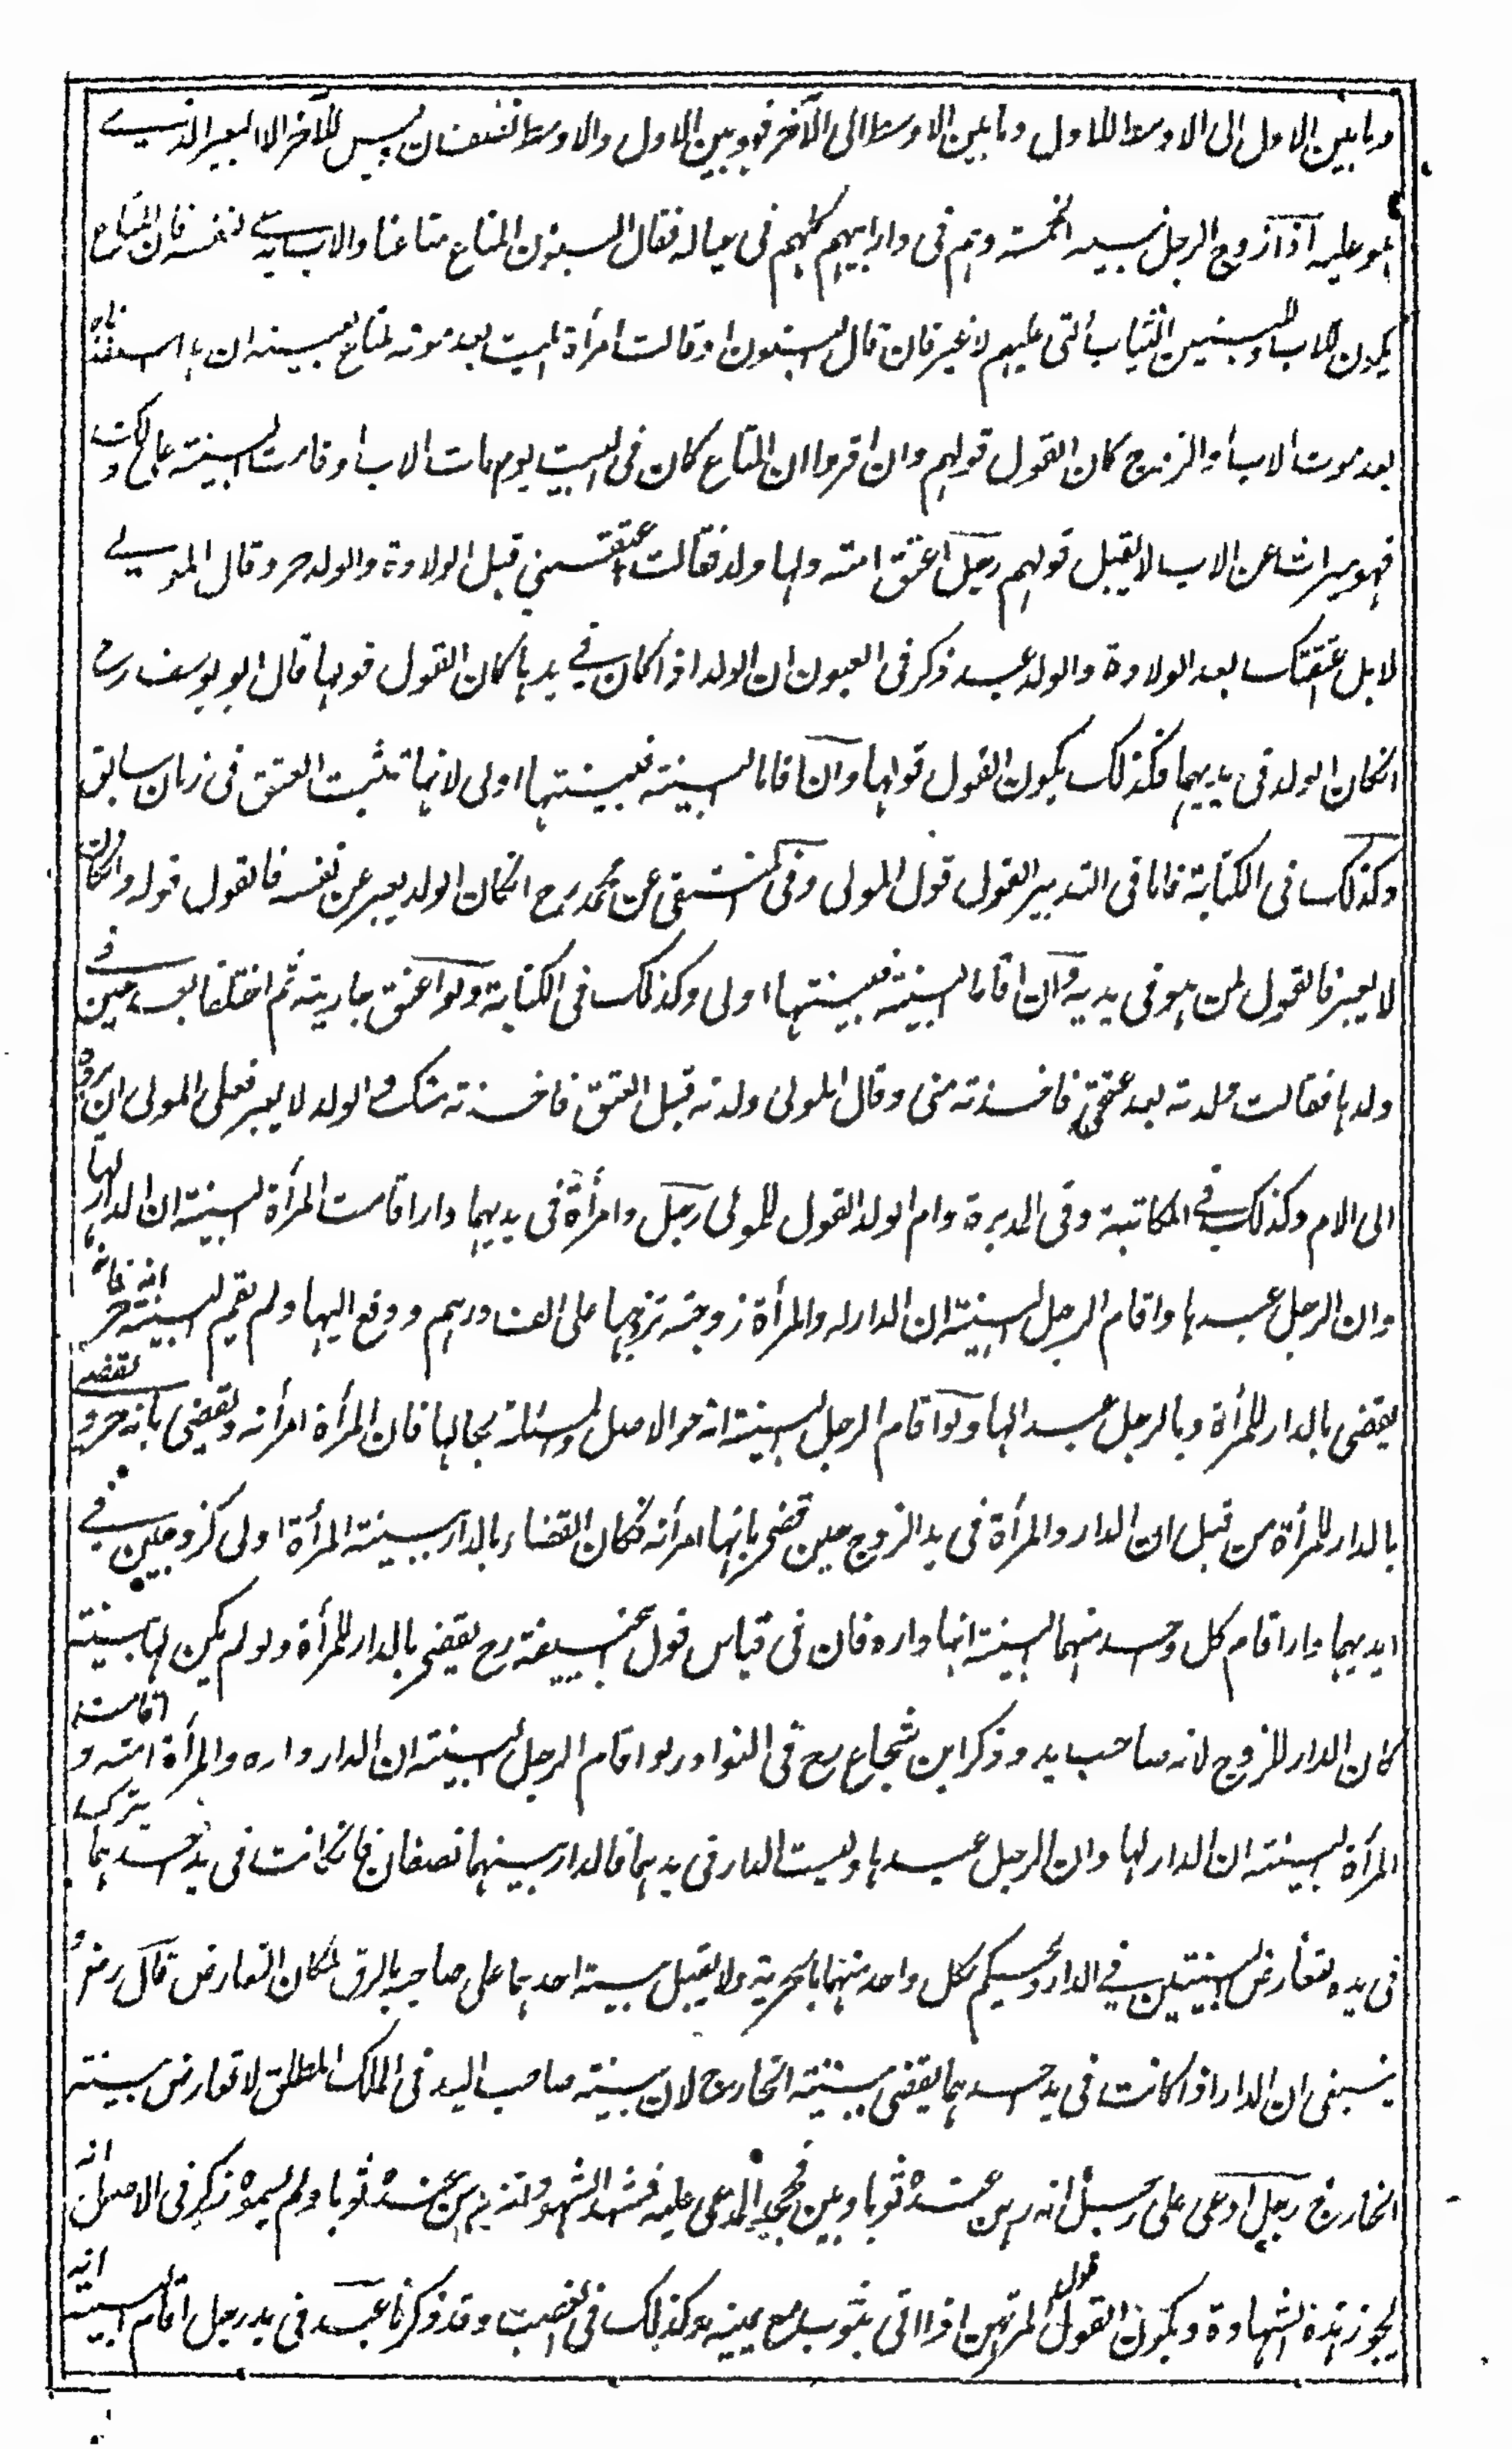 وما بين الاول الى الاوسط للاول وما بين الاوسط الى الآخر فهو بين الاول والاوسط نصفان ليس للآخر الا البعير الذي
هو عليه اذا زوج الرجل بنيه الخمسة وهم في دار ابيهم كلهم في عياله فقال البنون المتاع متاعنا والاب يدعيه لنفسه فان المتاع
يكون للاب وللبنين الثياب التي عليهم لا غير فان قال البنون او قالت امرأة الميت بعد موته لمتاع بعينه ان هذا استفدناه
بعد موت الاب او الزوج كان القول قولهم وان اقروا ان المتاع كان في البيت يوم مات الاب او قامت البينة على ذلك
فهو ميراث عن الاب لا يقبل قولهم رجل اعتق امته ولها ولد فقالت اعتقتني قبل الولادة والولد حر وقال المولى
لا بل اعتقتك بعد الولادة والولد عبد ذكر في العيون ان الولد اذا كان في يدها كان القول قولها قال ابو يوسف رح
انكان الولد في يديهما فكذلك يكون القول قولها وان اقاما البينة فبينتها اولى لانها تثبت العتق في زمان سابق
وكذلك في الكتابة فاما في التدبير القول قول المولى وفي المنتقى عن محمد رح انكان الولد يعبر عن نفسه فالقول قوله وانكان
لا يعبر فالقول لمن هو في يديه وان اقاما البينة فبينتها اولى وكذلك في الكتابة ولو اعتق جاريته ثم اختلفا بعد حين في
ولدها فقالت ولدته بعد عتقي فاخذته مني وقال المولى ولدته قبل العتق فاخذته منك والولد لا يعبر فعلى المولى ان يرده
الى الام وكذلك في المكاتبة وفي المدبرة وام الولد القول للمولى رجل وامرأة في يديهما دار اقامت المرأة البينة ان الدار لها
وان الرجل عبدها واقام الرجل البينة ان الدار له والمرأة زوجته تزوجها على الف درهم ودفع اليها ولم يقم البينة انه حر فانه
يقضى بالدار للمرأة وبالرجل عبدا لها ولو اقام الرجل البينة انه حر الاصل والمسئلة بحالها فان المرأة امرأته ويقضى بانه حر ويقضى
بالدار للمرأة من قبل ان الدار والمرأة في يد الزوج حين قضي بانها امرأته فكان القضاء بالدار ببينة المرأة اولى كزوجين في
ايديهما دار اقام كل واحد منهما البينة انها داره فان في قياس قول ابي حنيفة رح يقضى بالدار للمرأة ولو لم يكن لها بينة
كان الدار للزوج لانه صاحب يد وذكر ابن شجاع رح في النوادر لو اقام الرجل البينة ان الدار داره والمرأة امته واقامت
المرأة البينة ان الدار لها وان الرجل عبدها وليست الدار في يديهما فالدار بينهما نصفان فان كانت في يد احدهما يترك
في يده لتعارض البينتين في الدار ويحكم لكل واحد منهما بالحرية ولا يقبل بينة احدهما على صاحبه بالرق لمكان التعارض قال رض و
ينبغي ان الدار اذا كانت في يد احدهما يقضى ببينة الخارج لان بينة صاحب اليد في الملك المطلق لا تعارض بينة
الخارج رجل ادعى على رجل انه رهن عنده ثوبا وعين فجحد المدعى عليه فشهد الشهود انه رهن عنده ثوبا ولم يسموه ذكر في الاصل انه
يجوز هذه الشهادة ويكون القول قول المرتهن اذا اتى بثوب مع يمينه وكذلك في الغصب وقد ذكرنا عبد في يد رجل اقام البينة انه